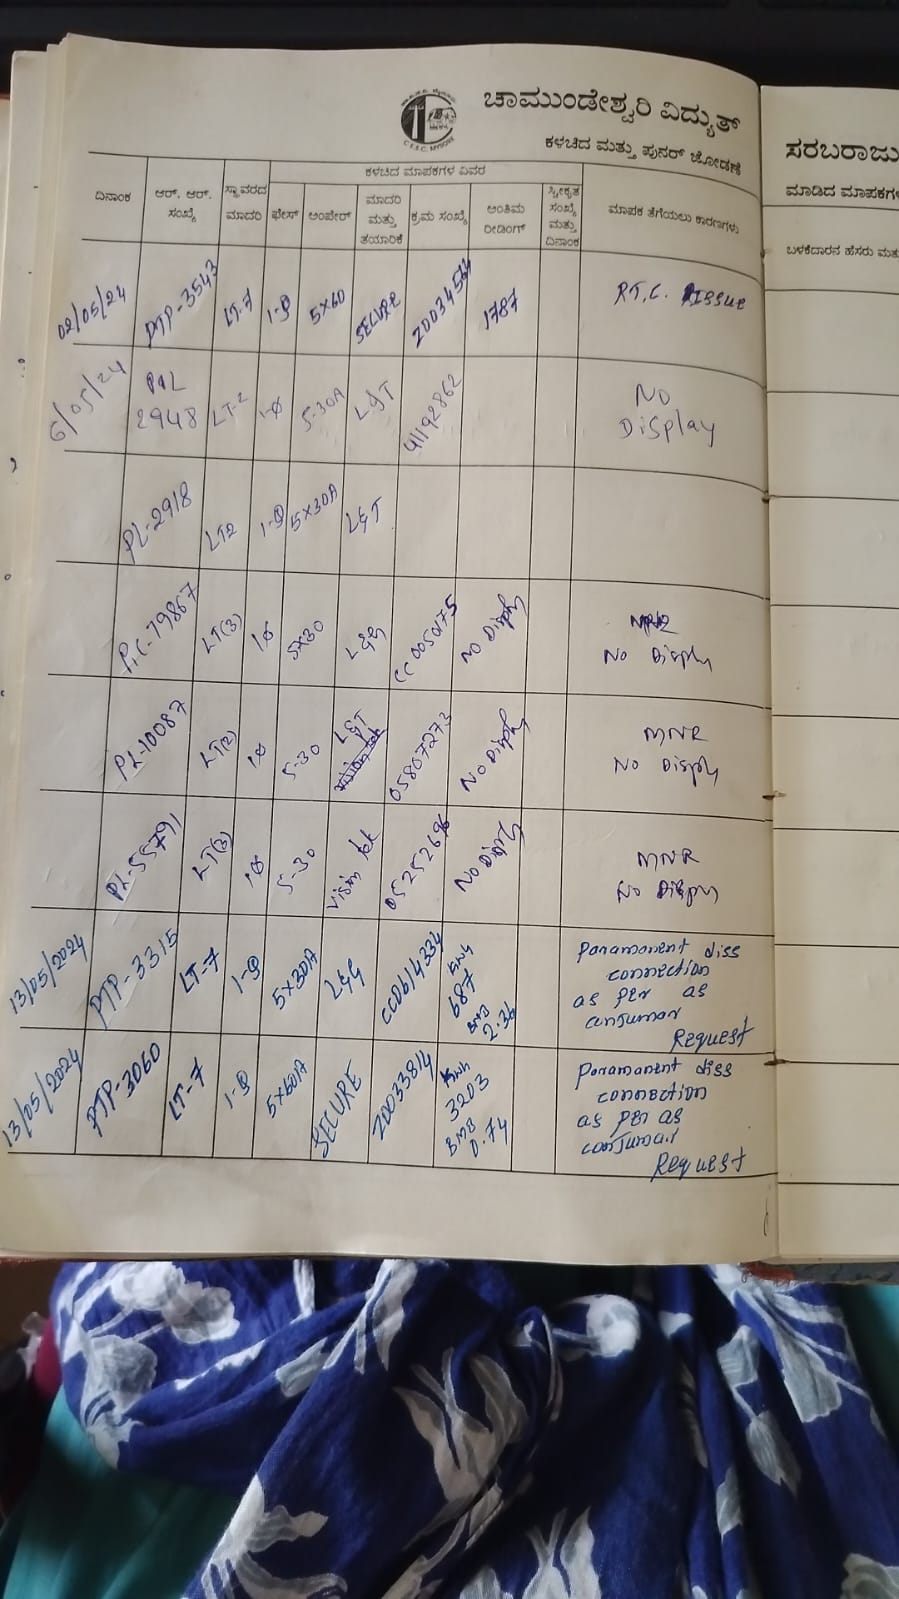 ಚಾಮುಂಡೇಶ್ವರಿ ವಿದ್ಯುತ್
ಕಳಚಿದ ಮತ್ತು ಪುನರ್ ಜೋಡಣೆ
C.E.S.C. MYSORE
ಕಳಚಿದ ಮಾಪಕಗಳ ವಿವರ
ದಿನಾಂಕ ಆರ್. ಆರ್. ಸಂಖ್ಯೆ ಸ್ಥಾವರದ ಮಾದರಿ ಫೇಸ್ ಅಂಪೇರ್ ಮಾದರಿ ಮತ್ತು ತಯಾರಿಕೆ ಕ್ರಮ ಸಂಖ್ಯೆ ಅಂತಿಮ ರೀಡಿಂಗ್ ಸ್ವೀಕೃತ ಸಂಖ್ಯೆ ಮತ್ತು ದಿನಾಂಕ ಮಾಪಕ ತೆಗೆಯಲು ಕಾರಣಗಳು
02/05/24 PTP-3543 LT-7 1-Φ 5×60 SECURE 1787 R.T.C. Issue
6/05/24 2948 LT-2 1-Φ 5-30A L&T 41192862 NO Display
PL-2918 LT2 1-Φ 5×30A L&T
LT(3) 1Φ 5×30 L&G CC0050175 No Display No Display
PL-10087 LT(2) 1Φ 5-30 L&T 05807273 No Disply MNR No Disply
PL-55791 LT(3) 1Φ 5-30 Vision tek 05252696 No Disply MNR No Disply
13/05/2024 PTP-3315 LT-7 1-Φ 5×30A L&G CCD614334 kwh 687 BMD 2.36 Paramonent diss connection as per as consumar Request
13/05/2024 PTP-3060 LT-7 1-Φ 5×60A SECURE ZD033814 kwh 3203 BMD 0.74 Paramanent diss connection as per as consumar Request
ಸರಬರಾಜು
ಮಾಡಿದ ಮಾಪಕಗಳ
ಬಳಕೆದಾರನ ಹೆಸರು ಮತ್ತು